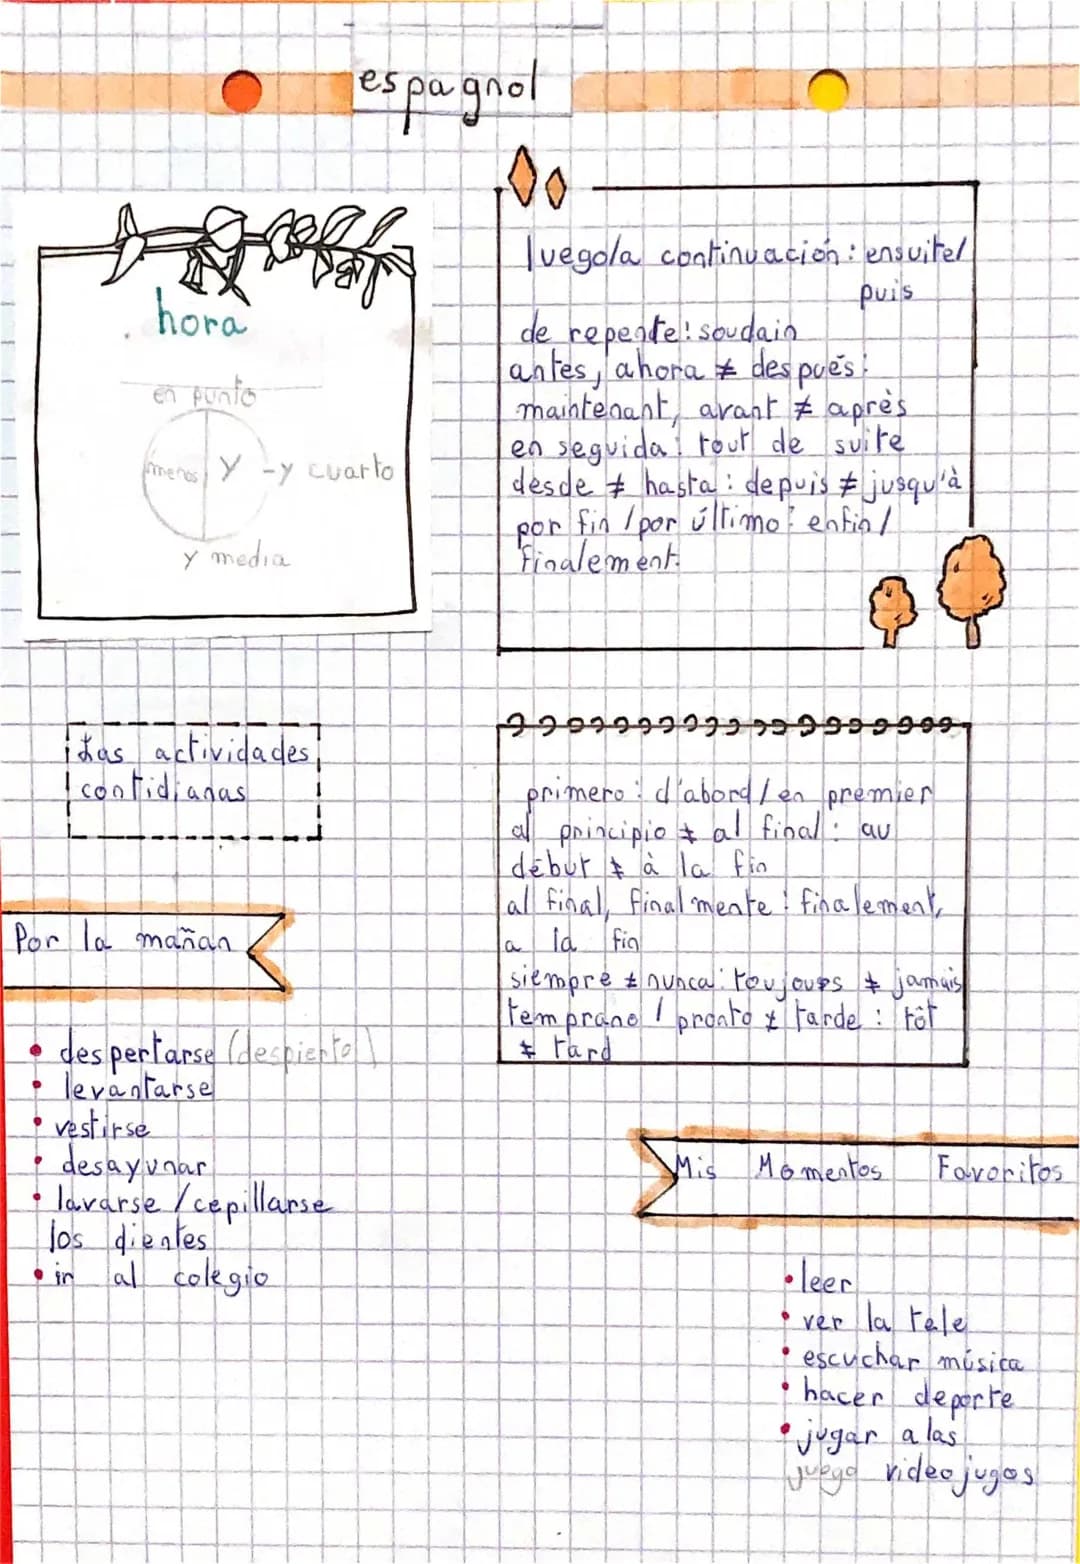 espagnol
hora
en punto
menos y - y cuarto
y media
luego/a continuación : ensuite/
puis
de repente : soudain
antes, ahora ≠ despuēs :
maintenant, avant ≠ après
en seguida : tout de suite
desde ≠ hasta : depuis ≠ jusqu'à
por fin / por último : enfin /
finalement.
Las actividades
contidianas
primero : d'abord / en premier
al principio ≠ al final : au
début ≠ à la fin
al final, finalmente : finalement,
a la fin
siempre ≠ nunca : toujours ≠ jamais
temprano / pronto ≠ tarde : tôt
≠ tard
Por la mañan
• despertarse (despierto)
• levantarse
• vestirse
• desayunar
• lavarse / cepillarse
los dientes
• in al colegio
Mis Momentos Favoritos
• leer
• ver la tele
• escuchar música
• hacer deporte
• jugar a las
juego videojugos